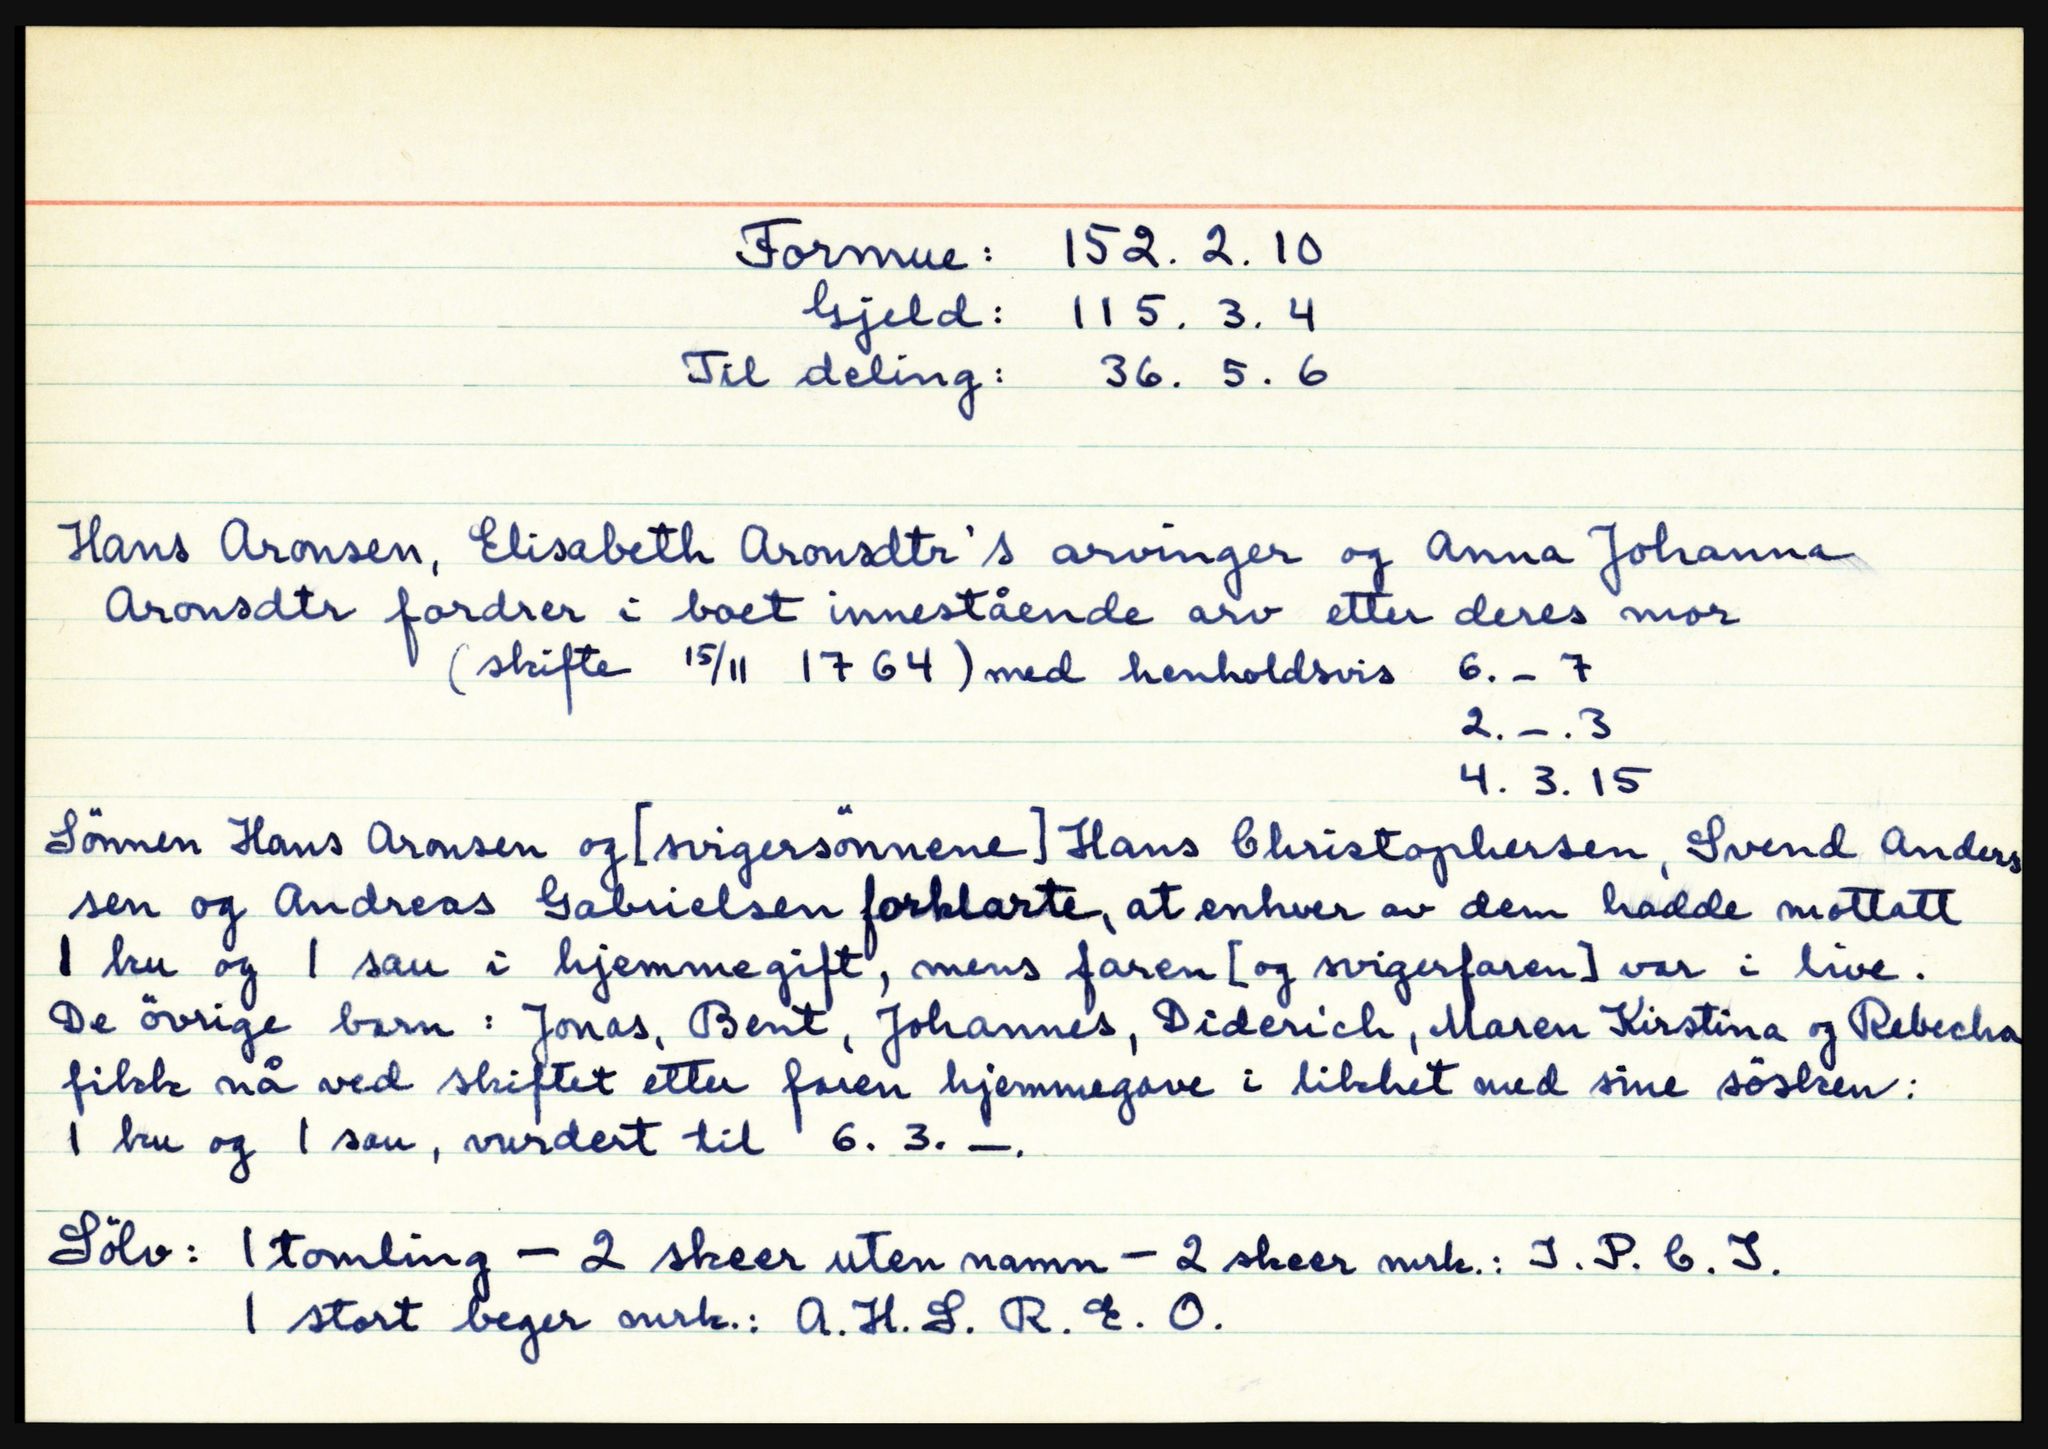 Formue: 152. 2. 10
Gjeld: 115. 3. 4
Til deling: 36. 5. 6
Hans Aronsen, Elisabeth Aronsdtr's arvinger og Anna Johanna
Aronsdtr fordrer i boet innestående arv etter deres mor
(skifte 15/11 1764) med henholdsvis 6. – 7
2. –. 3
4. 3. 15
Sönnen Hans Aronsen og [svigersönnene] Hans Christophersen, Svend Anders
sen og Andreas Gabrielsen forklarte, at enhver av dem hadde mottatt
1 ku og 1 sau i hjemmegift, mens faren [og svigerfaren] var i live.
De övrige barn: Jonas, Bent, Johannes, Diderich, Maren Kirstina og Rebecha
fikk nå ved skiftet etter faren hjemmegave i likhet med sine sösken:
1 ku og 1 sau, vurdert til 6. 3. –.
Sölv: 1 tomling – 2 skeer uten namn – 2 skeer mrk.: I. P. C. I.
1 stort beger mrk.: A. H. S. R. E. O.